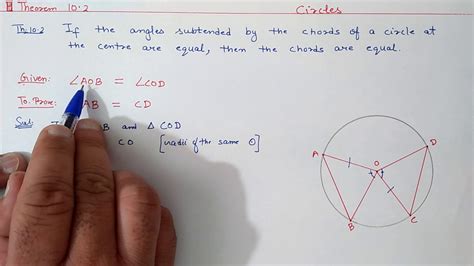 Theorem 10.2 Circles
Th:10.2 If the angles subtended by the chords of a circle at
the centre are equal, then the chords are equal.
Given: ∠AOB = ∠COD
To Prove: AB = CD
Sol: B and Δ COD
CO [radii of the same ⊙]
A
B
C
D
O